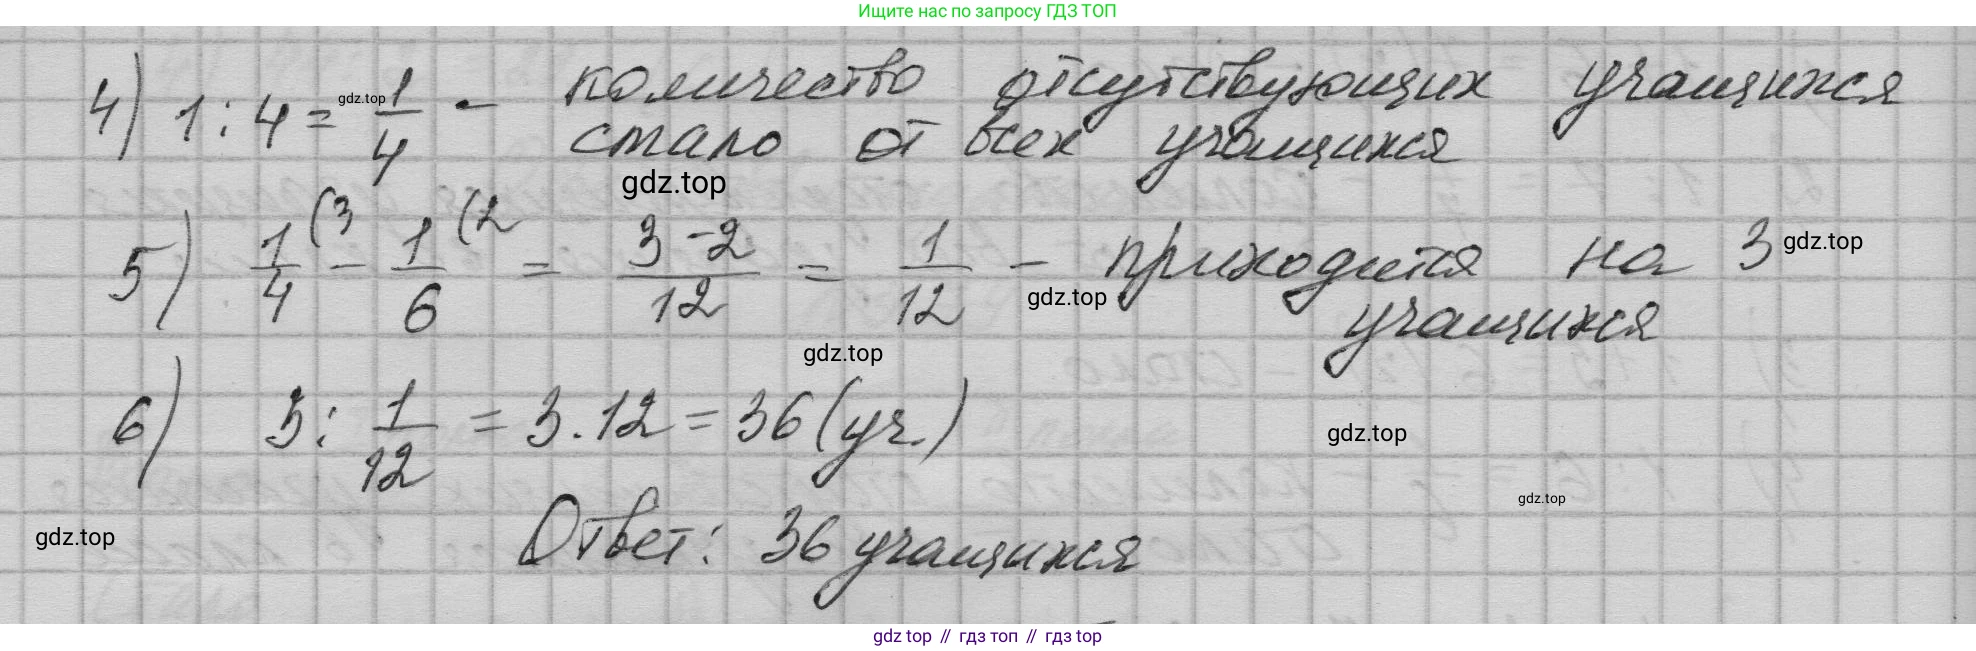 Ищите нас по запросу ГДЗ ТОП
4) 1 : 4 = 1/4 - количество отсутствующих учащихся
gdz.top
стало от всех учащихся
gdz.top
5) 1/4 (3 - 1/6 (2 = 3-2/12 = 1/12 - приходится на 3
gdz.top
gdz.top
учащихся
gdz.top
6) 3 : 1/12 = 3 . 12 = 36 (уч.)
gdz.top
gdz.top
gdz.top
Ответ: 36 учащихся
gdz top // гдз топ // гдз top